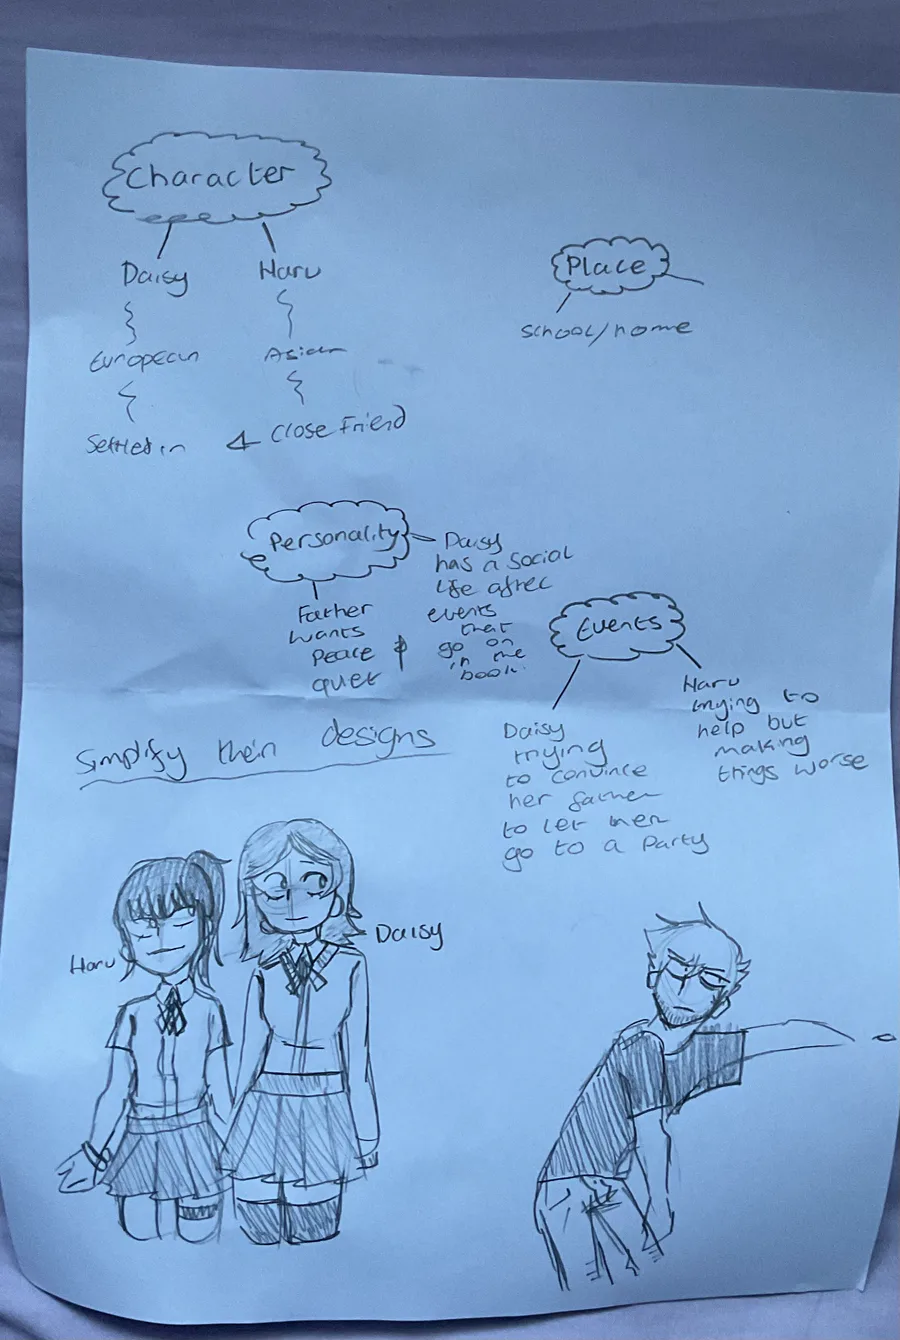 Character
Daisy Haru
European Asian
Settled in Close Friend
Place
school/home
Personality
Father
wants
peace &
quiet
Daisy
has a social
life after
events
that
go on
in the
book.
Events
Daisy
trying
to convince
her father
to let her
go to a party
Haru
trying to
help but
making
things worse
Simplify their designs
Haru
Daisy